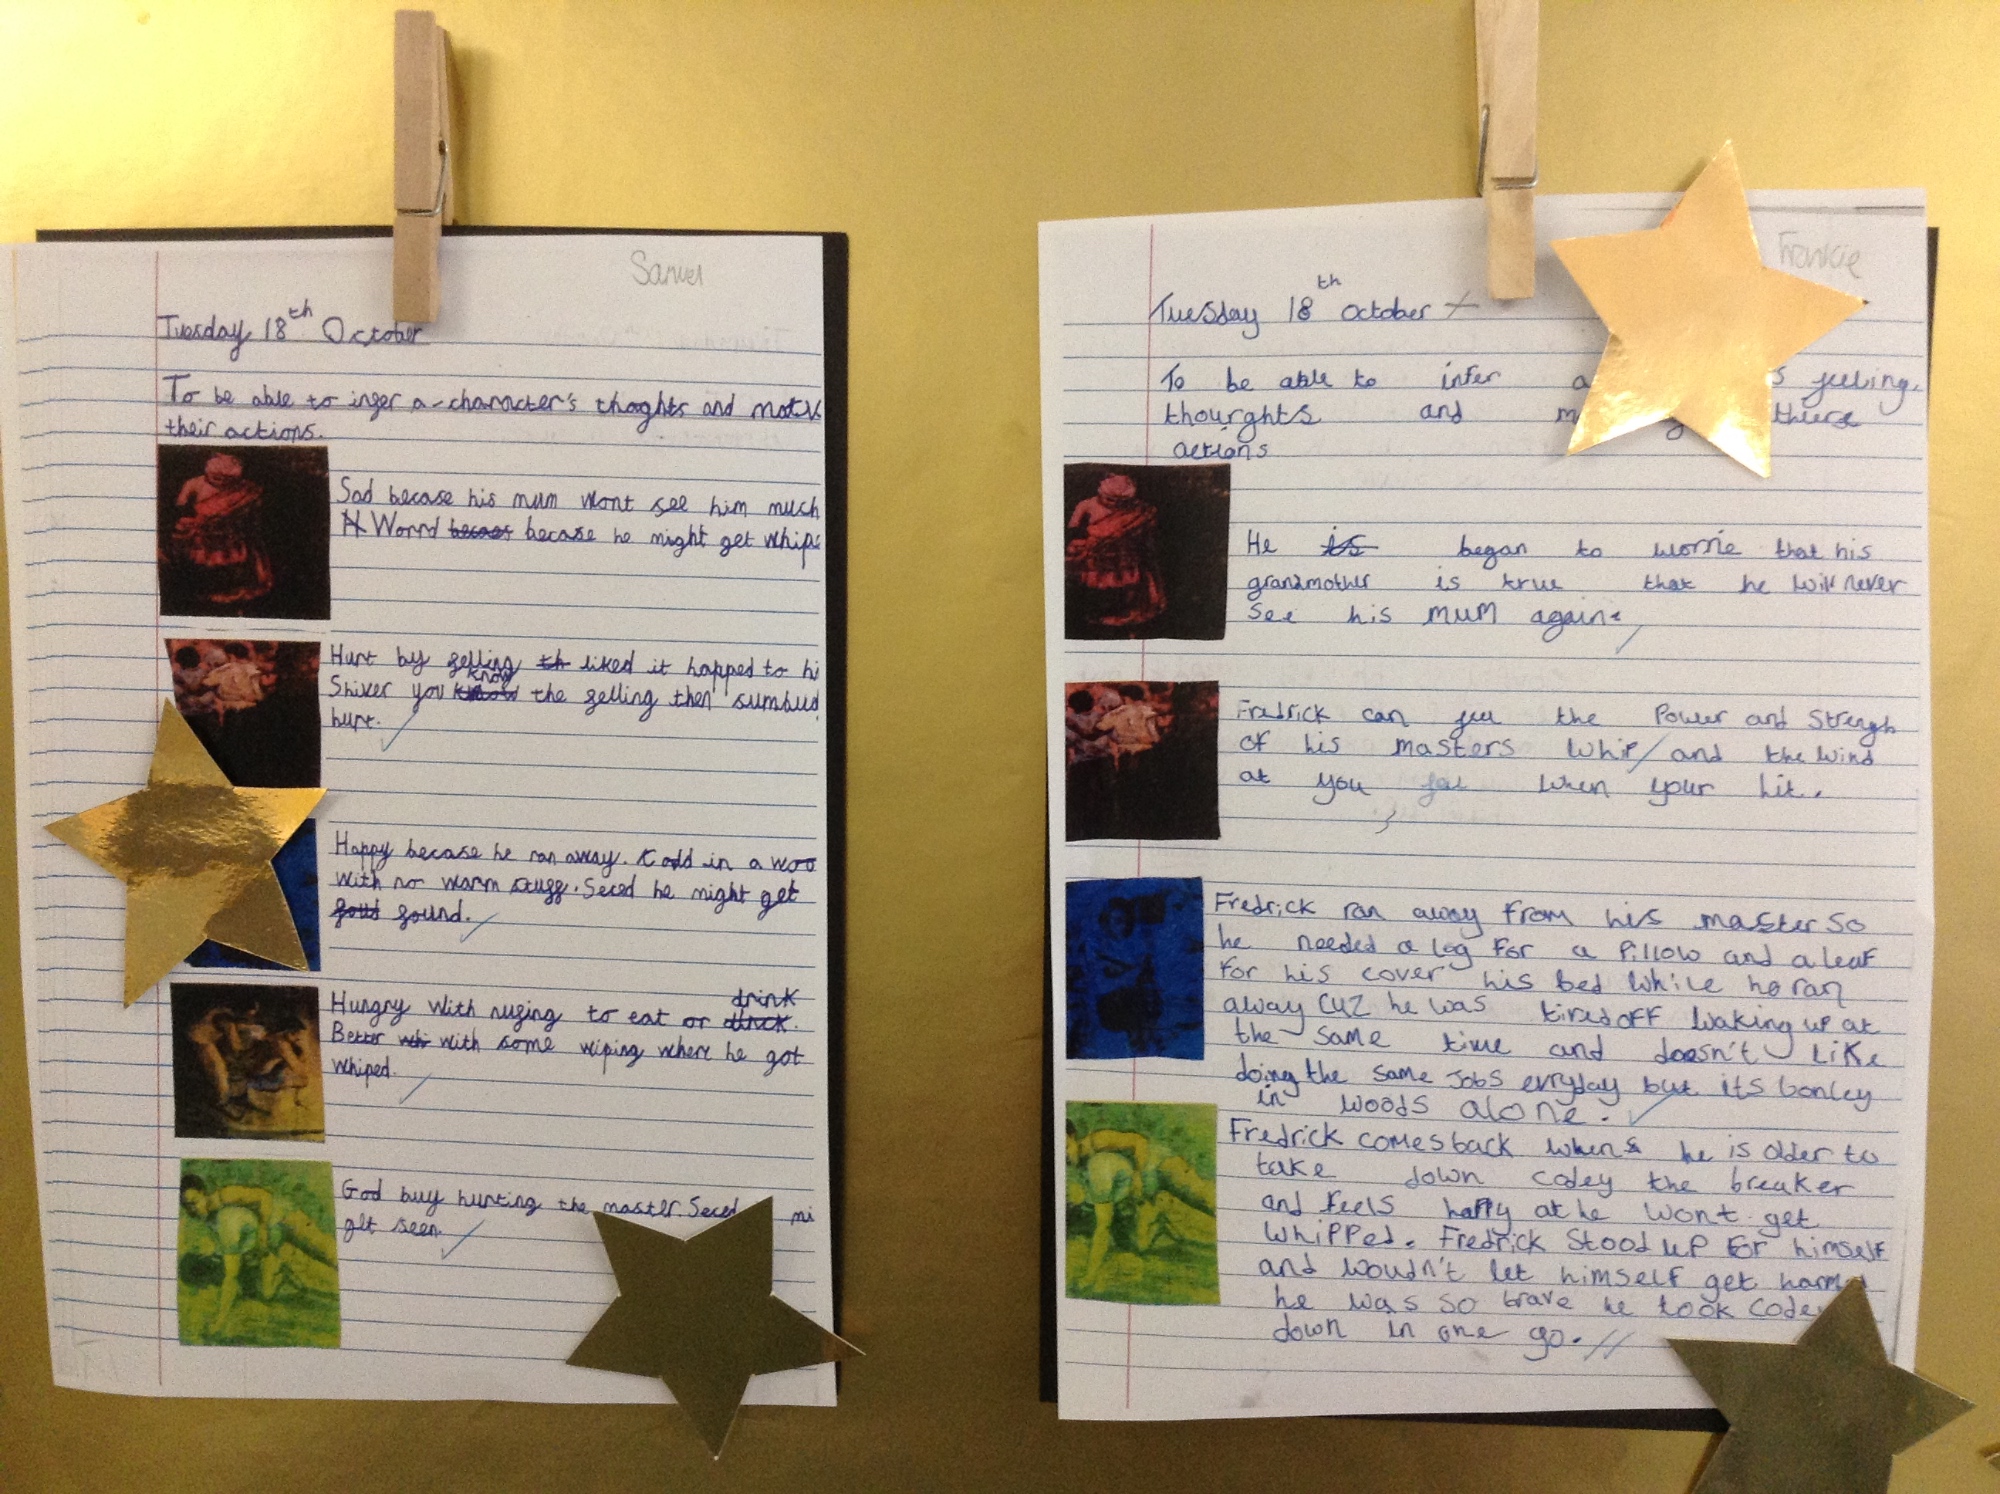 Samuel
Tuesday 18th October
To be able to infer a character's thoghts and
their actions.
Sad becase his mum wont see him much
Worrd becaes becase he might get
Hurt by felling th liked it happed to
Shiver you know the felling then
hurt.
Happy becase he ran away. in a
with no warm stuff. Seced he might get
foud found.
Hungry with nufing to eat or drink
Better whi with some wiping where he got
whiped.
God buy hurting the master. Seced
get seen.
Frankie
Tuesday 18th October
To be able to infer feeling.
thourghts and there
actions
He is began to worrie that his
grandmother is true that he will never
see his mum again.
Fredrick can feel the Power and Strengh
of his masters whip and the wind
at you feel when your hit.
Fredrick ran away from his master so
he needed a log for a Pillow and a leaf
for his cover his bed while he ran
away cuz he was tired off waking up at
the same time and doesn't like
doing the same Jobs evryday but its lonley
in woods alone.
Fredrick comes back when he is older to
take down codey the breaker
and feels happy at he wont get
whipped. Fredrick stood up for himself
and woudn't let himself get
he was so brave he took
down in one go.